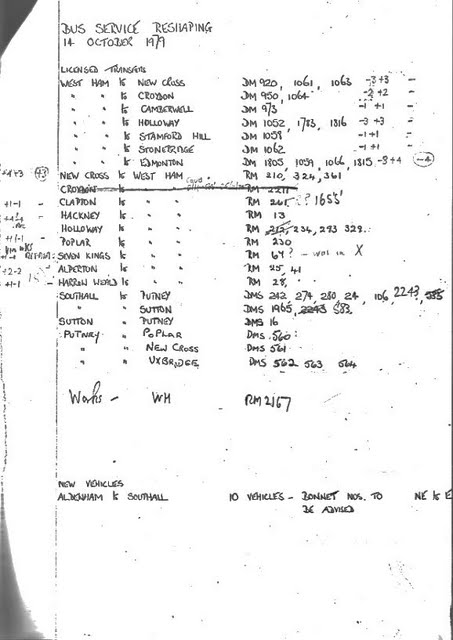 BUS SERVICE RESHAPING
14 OCTOBER 1979
LICENSED TRANSFERS
WEST HAM to NEW CROSS DM 920, 1061, 1063 -3+3 -
" " to CROYDON DM 950, 1064 -2 +2 -
" " to CAMBERWELL DM 973 -1 +1 -
" " to HOLLOWAY DM 1052, 1783, 1816 -3 +3 -
" " to STAMFORD HILL DM 1058, -1+1 -
" " to STONEBRIDGE DM 1062 -1+1 -
" " to EDMONTON DM 1805, 1059, 1066, 1815 -3+4 (-4)
+3 (+3) NEW CROSS to WEST HAM RM 210, 324, 361
CROYDON to RM 2211
+1-1 - CLAPTON to " " RM 261 ? 1655
HACKNEY to " " RM 13
HOLLOWAY to " " RM 212, 234, 293 329
POPLAR to " " RM 230
SEVEN KINGS to " " RM 64? - was in X
+2-2 - ALPERTON to " " RM 25, 41
+1-1 HARROW WEALD to " " RM 28,
SOUTHALL to PUTNEY DMS 242, 274, 280, 24, 106, 2243, 585
" " SUTTON DMS 1965, 2243 583
SUTTON " PUTNEY DMS 16
PUTNEY " POPLAR DMS 560
" " NEW CROSS DMS 561
" " UXBRIDGE DMS 562 563 564
Works - WH RM 2167
NEW VEHICLES
ALDENHAM to SOUTHALL 10 VEHICLES - BONNET NOS. TO NE to E
BE ADVISED